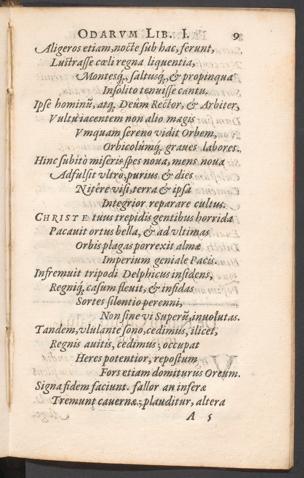 ODARVM LIB. I. 9
Aligeros etiam, nocte sub hac, ferunt,
Lustrasse cœli regna liquentia,
Montesq́, saltusq́, & propinqua
Insolito tenuisse cantu.
Ipse hominũ, atq́, Deûm Rector, & Arbiter,
Vultu iacentem non alio magis
Vmquam sereno vidit Orbem,
Orbicolũmq́, graues labores.
Hinc subitò miseris spes noua, mens noua
Adfulsit vltrò, purius & dies
Nitêre visi, terra & ipsa
Integrior reparare cultus.
CHRISTE tuus trepidis gentibus horrida
Pacauit ortus bella, & ad vltimas
Orbis plagas porrexit almæ
Imperium geniale Pacis.
Infremuit tripodi Delphicus insidens,
Regniq́, casum fleuit, & insidas
Sortes silentio perenni,
Non sine vi Superũ, inuolutas.
Tandem, vlulante sono, cedimus, ilicet,
Regnis auitis, cedimus; occupat
Heres potentior, repostum
Fors etiam domiturus Orcum.
Signa fidem faciunt. fallor an inferæ
Tremunt cauernæ; plauditur, altera
A 5